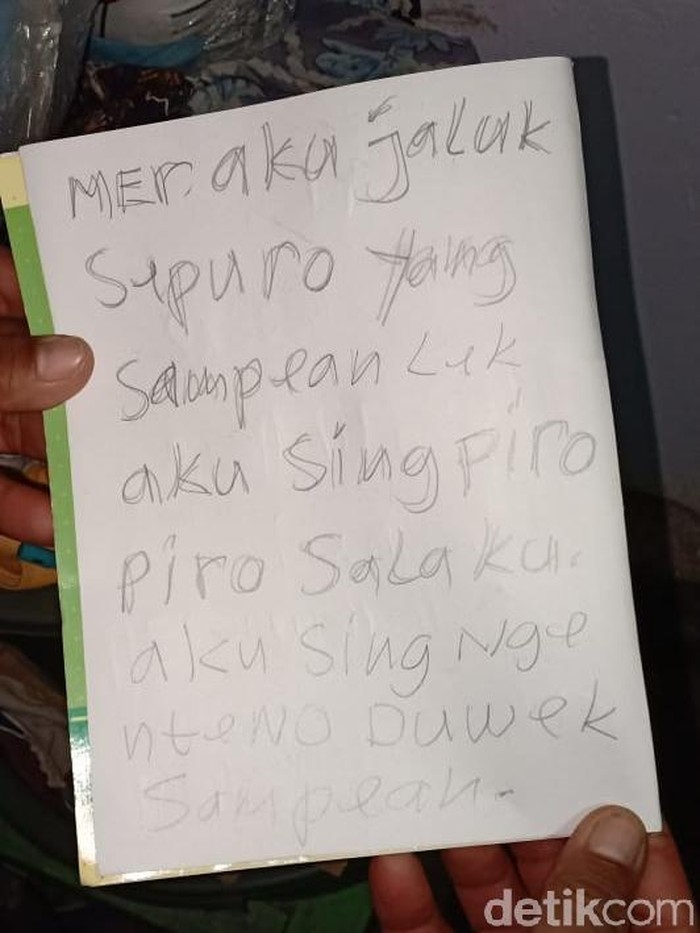 MER. aku jaLuk
Sepuro Yang
Sampean Lek
aku Sing piro
piro SaLa ku.
aku Sing Nge
nteNO DUwek
Sampean.
detikcom